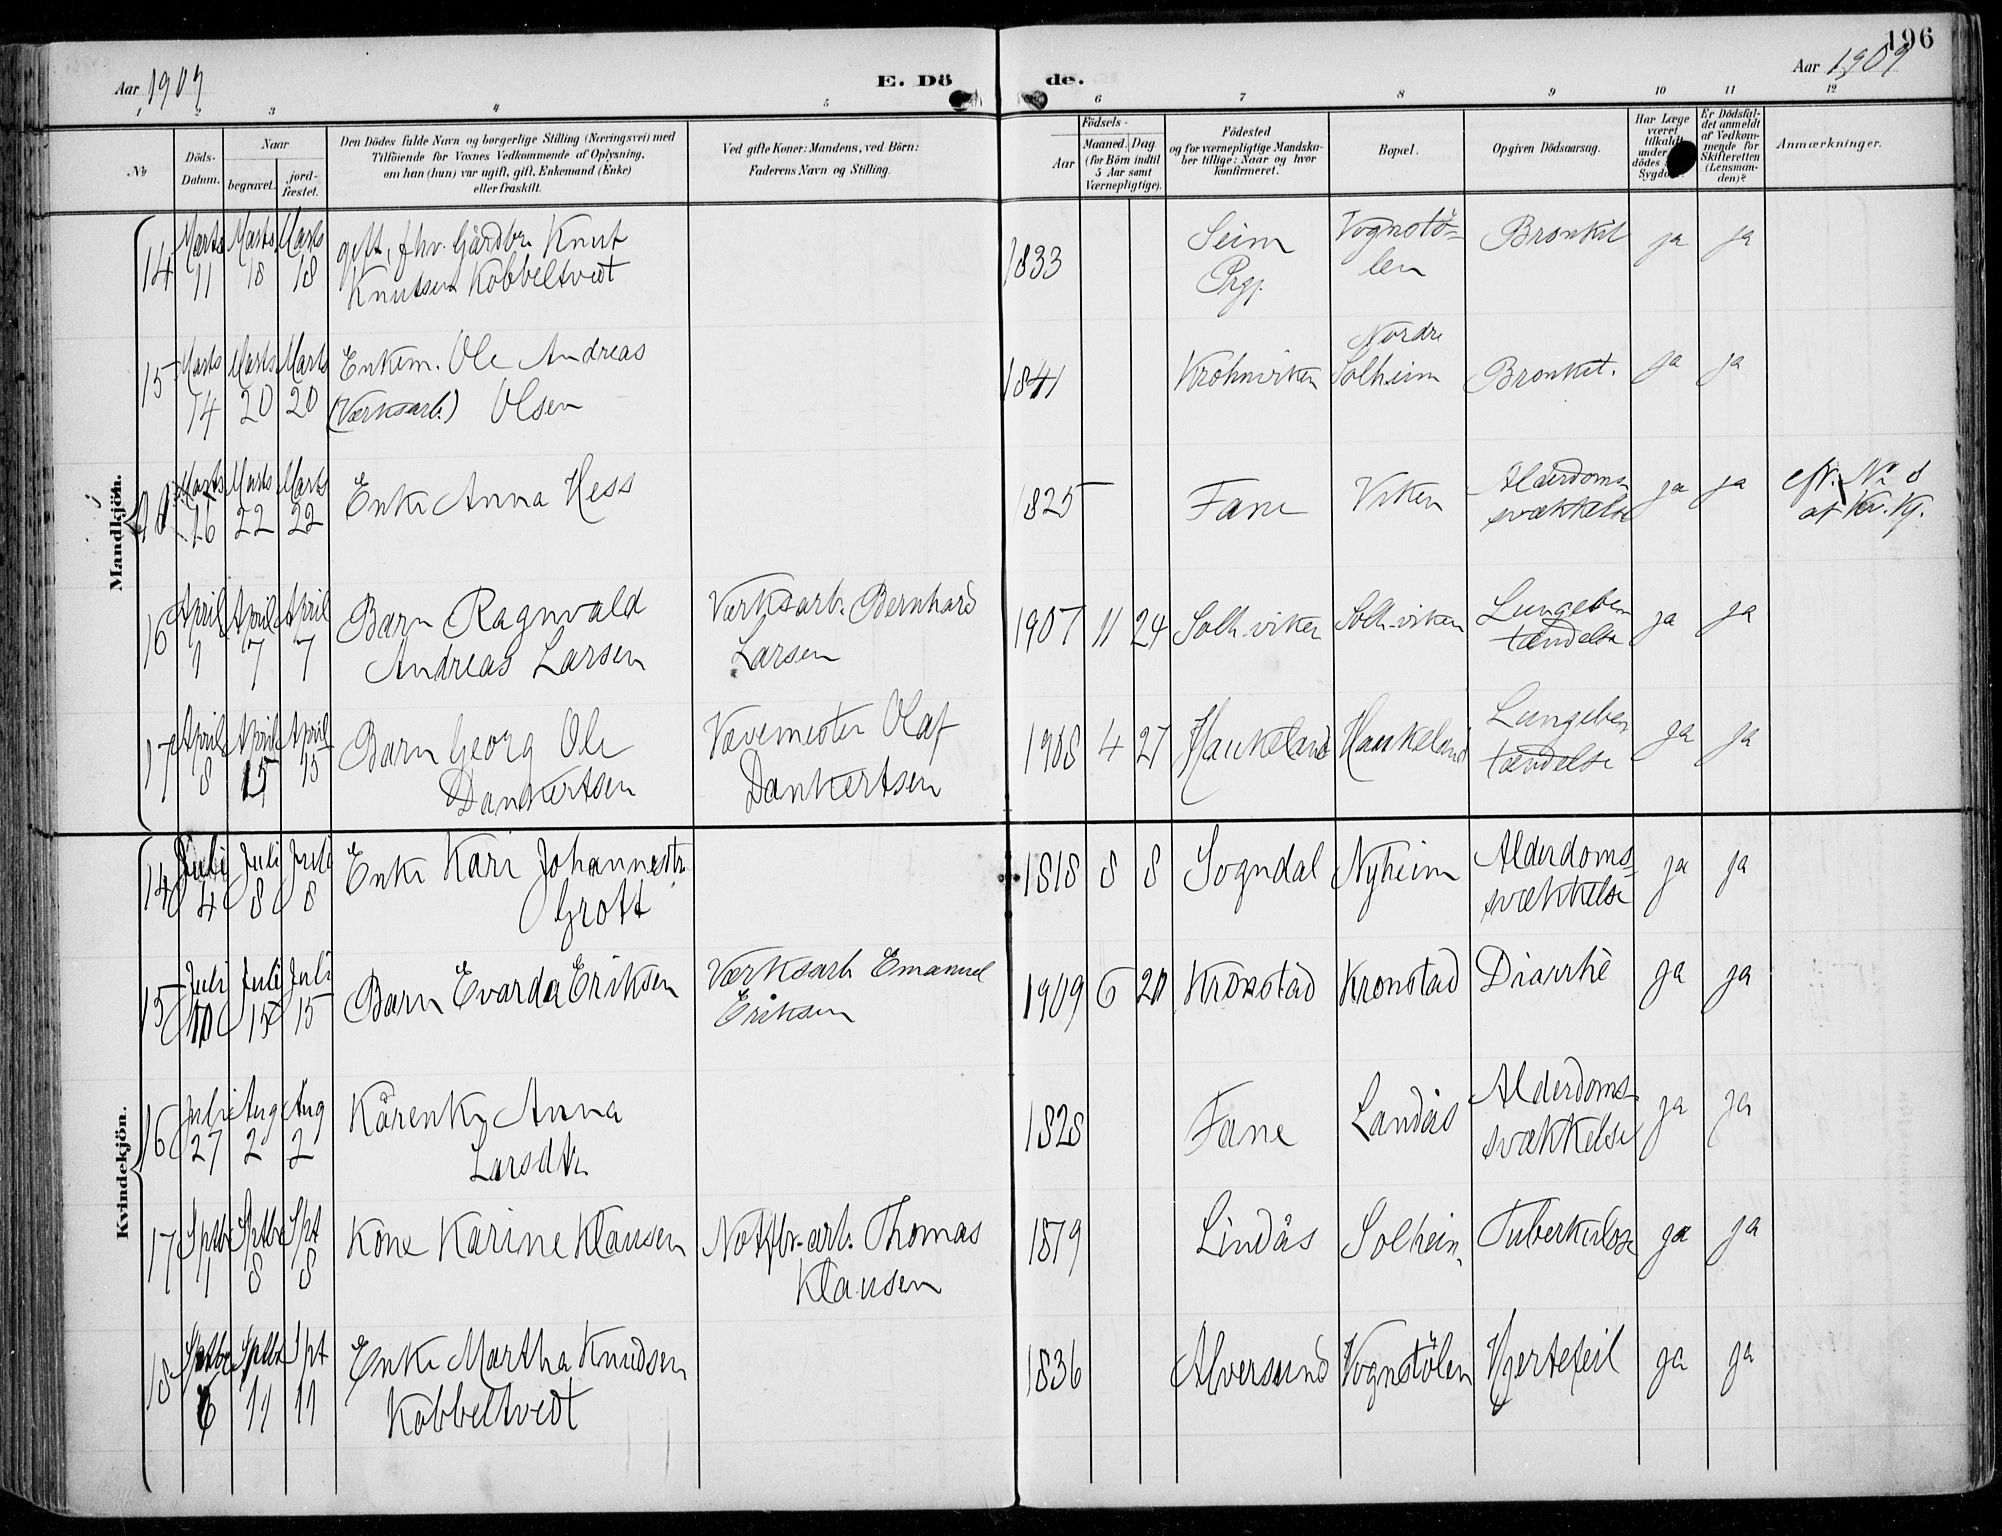 196
Aar 1909
E. Dö
de.
Aar 1909
1 2 3 4 5 6 7 8 9 10 11 12
No
Döds-
Datum.
Naar
begravet.
jord-
fæstet.
Den Dödes fulde Navn og borgerlige Stilling (Næringsvei) med
Tilföiende for Voxnes Vedkommende af Oplysning,
om han (hun) var ugift, gift, Enkemand (Enke)
eller fraskilt.
Ved gifte Koner: Mandens, ved Börn:
Faderens Navn og Stilling.
Födsels-
Aar
Maaned. Dag.
(for Börn indtil
5 Aar samt
Værnepligtige).
Födested
og for værnepligtige Mandska-
ber tillige: Naar og hvor
konfirmeret.
Bopæl.
Opgiven Dödsaarsag.
Har Læge
været
tilkaldt
under
dödes
Er Dödsfal-
det anmeldt
af Vedkom-
mende for
Skifteretten
(Lensman-
den)?
Anmærkninger.
Mandkjön.
14 Marts 11 Marts 18 Marts 18 gift, fhv. Gårdbr. Knut
Knutsen Kobbeltvedt
1833 Seim
Prgj.
Vognstö-
len
Bronkit ja ja
15 Marts 14 Marts 20 Marts 20 Enkem. Ole Andreas
(Værksarb.) Olsen
1841 Krohnviken Nordre
Solheim Bronkit. ja ja
Marts 16 Marts 22 Marts 22 Enke Anna Hess
1825 Fane Viken Alderdoms-
svækkelse ja ja
af Kv. Kj.
16 April 1 April 7 April 7 Barn Ragnvald
Andreas Larsen
Værksarb. Bernhard
Larsen
1907 11 24 Solh-viken Solh-viken Lungebe-
tændelse ja ja
17 April 8 April 15 April 15 Barn Georg Ole
Dankertsen
Vævemester Olaf
Dankertsen
1908 4 27 Haukeland Haukeland Lungebe-
tændelse ja ja
Kvindekjön.
14 Juli 4 Juli 8 Juli 8 Enke Kari Johannesdtr.
Grott
1818 8 8 Sogndal Nyheim Alderdoms-
svækkelse ja ja
15 Juli 10 Juli 15 Juli 15 Barn Evarda Eriksen
Værksarb. Emanuel
Eriksen
1909 6 20 Kronstad Kronstad Diarrhè ja ja
16 Juli 27 Aug 2 Aug 2 Kårenke Anna
Larsdtr
1828 Fane Landås Alderdoms-
svækkelse ja ja
17 Sptbr 1 Sptbr 8 Spt 8 Kone Karine Klausen
Thomas
Klausen
1879 Lindås Solheim Tuberkulose ja ja
18 Sptbr 6 Sptbr 11 Spt 11 Enke Martha Knudsen
Kobbeltvedt
1836 Alversund Vognstölen Hjertefeil ja ja